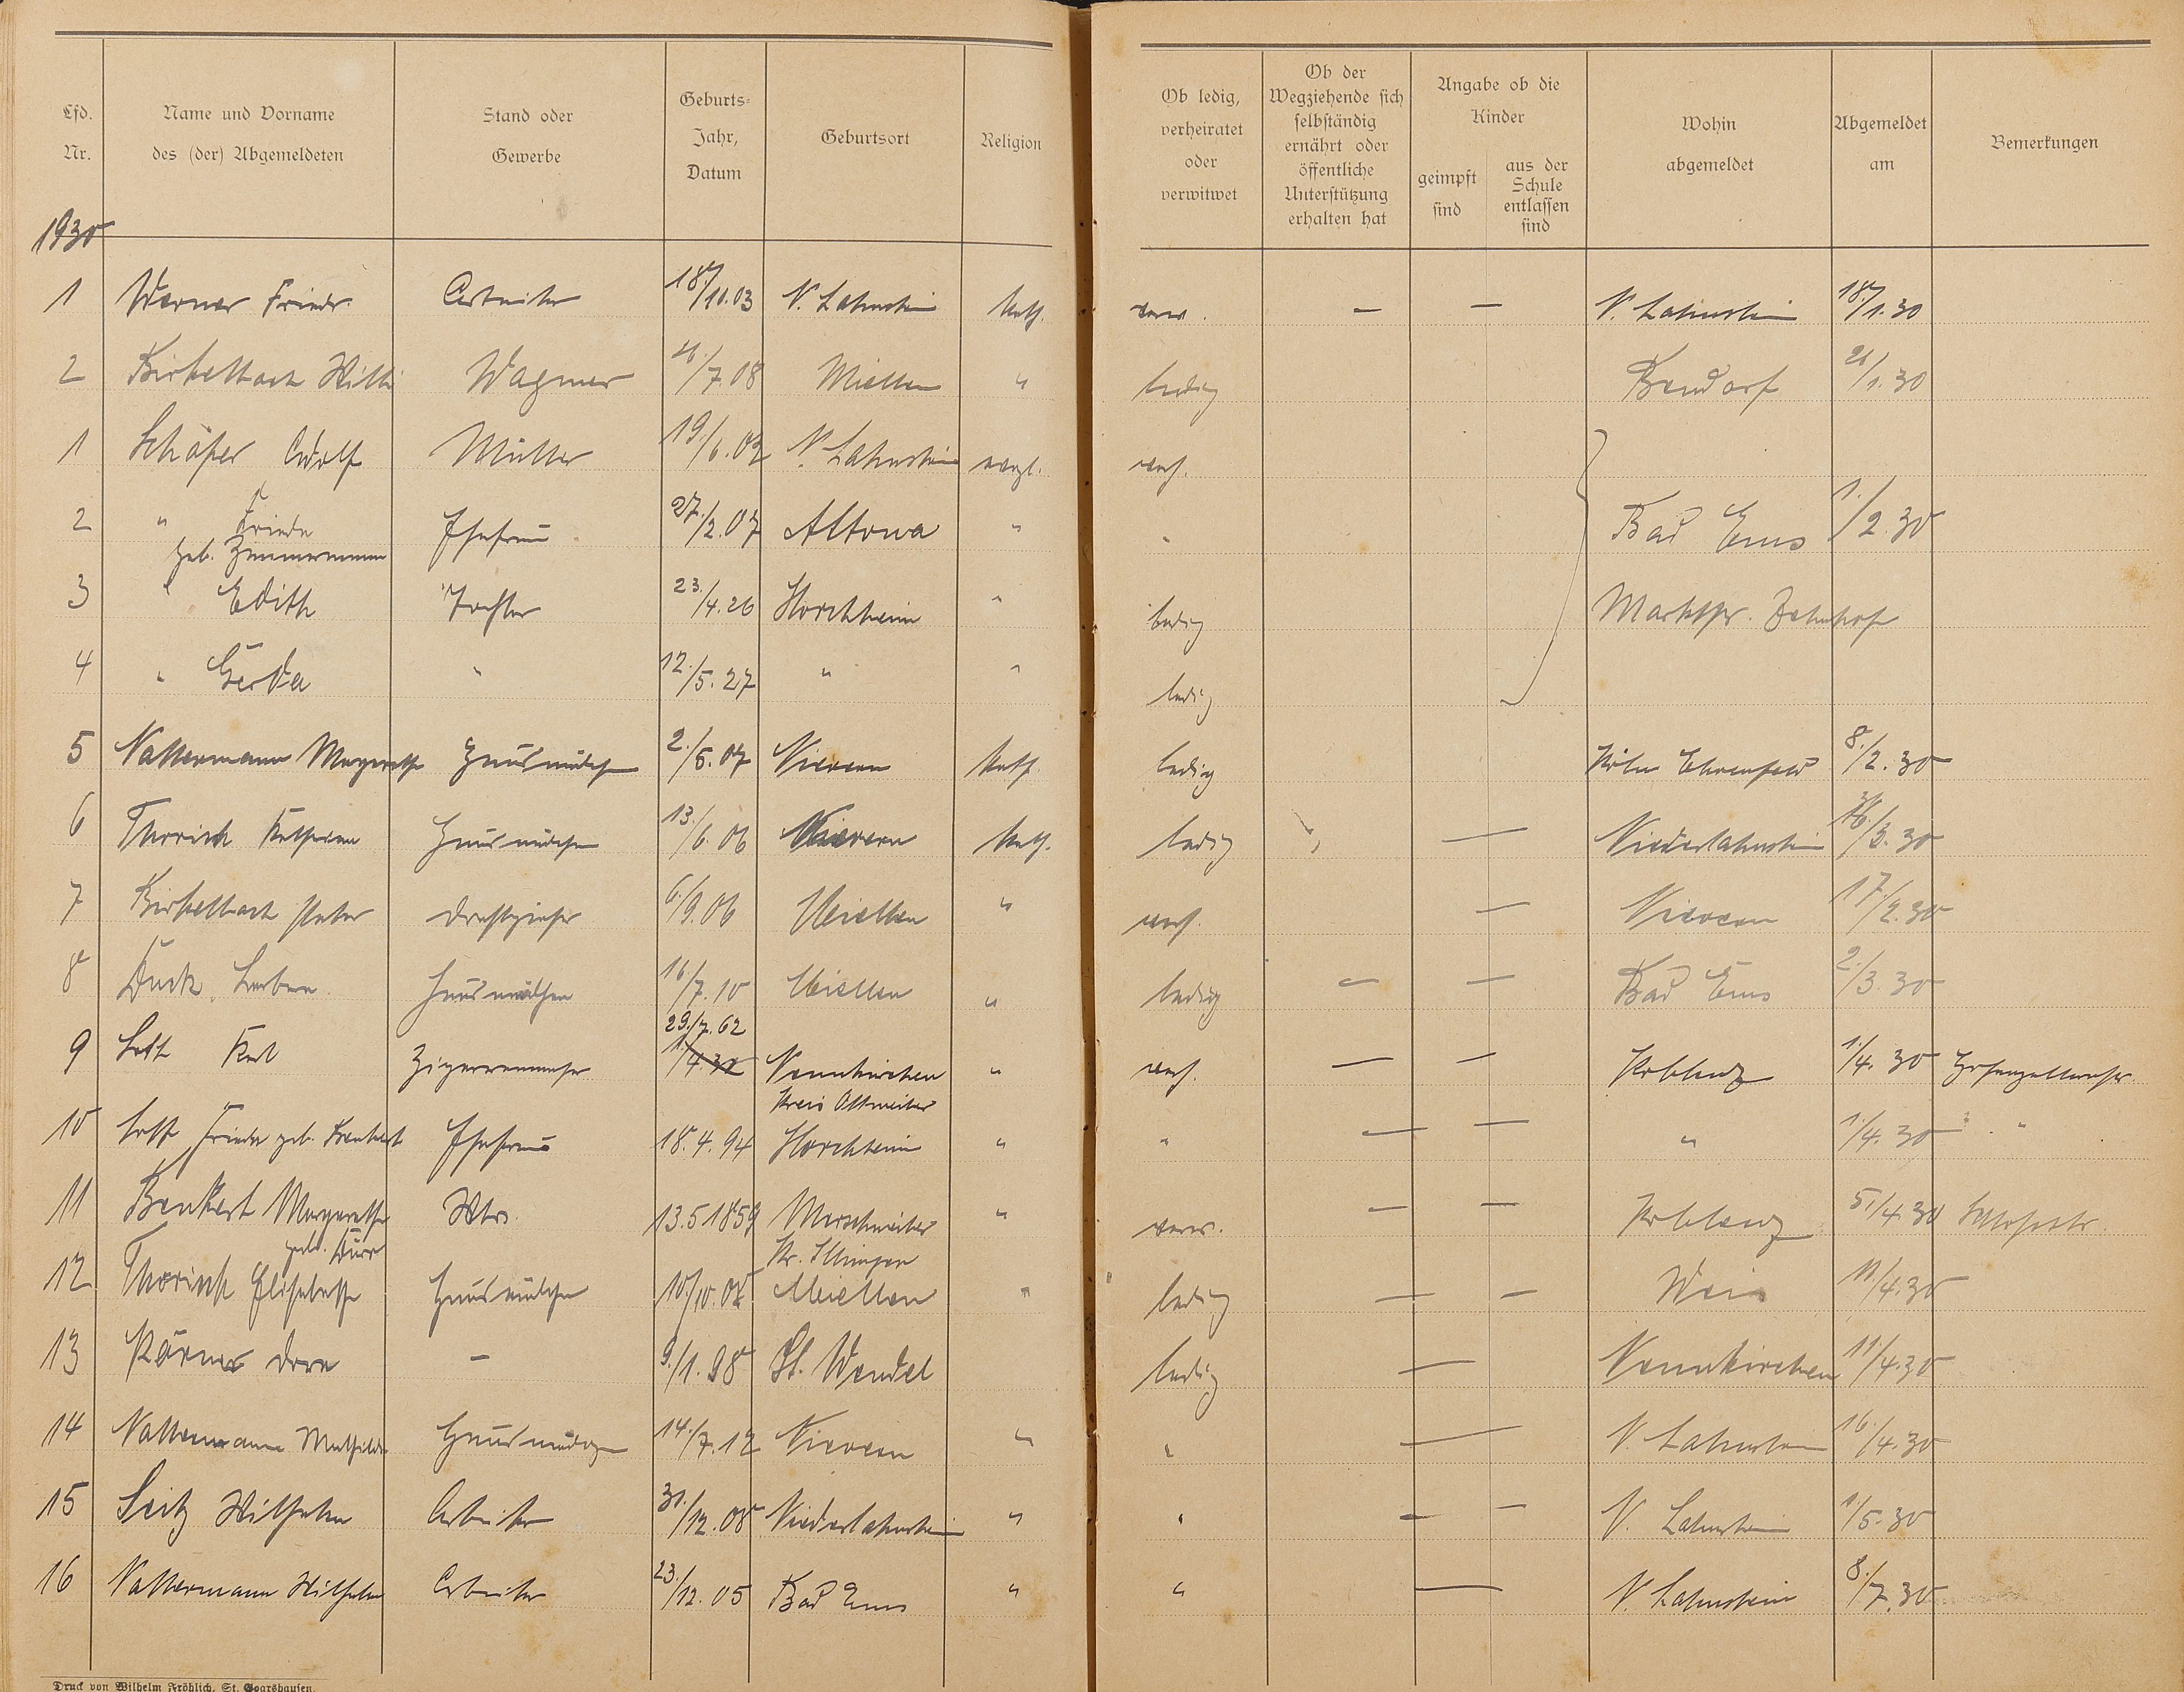 Lfd. Nr. Name und Vorname des (der) Abgemeldeten Stand oder Gewerbe Geburts-Jahr, Datum Geburtsort Religion Ob ledig, verheiratet oder verwitwet Ob der Wegziehende sich selbständig ernährt oder öffentliche Unterstützung erhalten hat Angabe ob die Kinder geimpft sind aus der Schule entlassen sind Wohin abgemeldet Abgemeldet am Bemerkungen
1930
1 Werner Friedr. Arbeiter 18/11.03 N. Lahnstein kath. verw. — — N. Lahnstein 18/1.30
2 Birkelbach Willi Wagner 4./7.08 Miellen " ledig Bendorf 21/1.30
1 Schäfer Adolf Müller 19./6.03 N. Lahnstein evgl. verh.
2 " Frieda Ehefrau 27./2.07 Altona " " Bad Ems 1./2.30
geb. Zimmermann
3 " Edith Tochter 23./4.26 Horchheim " ledig Marktstr. Bahnhof
4 " Gerda " 12./5.27 " " ledig
5 Nattermann Margarethe Hausmädchen 2./5.07 Nievern kath. ledig Köln Ehrenfeld 8./2.30
6 Thorisch Katharina Hausmädchen 13./6.06 Nievern kath. ledig — Niederlahnstein
7 Birkelbach Peter 6./9.06 Miellen " verh. — Nievern 17/2.30
8 Duck Barbara Hausmädchen 16/7.10 Miellen " ledig — — Bad Ems 2./3.30
29./7.62
9 Lott Karl 1./4.30 Neunkirchen " verh. — — Koblenz 1./4.30
Kreis Ottweiler
10 Lott Frieda geb. Benkert Ehefrau 18.4.94 Horchheim " " — — " 1./4.30 " "
11 Benkert Margarethe Wtw. 13.5 1859 " verw. — — Koblenz 5/4.30 Schloßstr.
geb. Dürr Kr. Illingen
12 Thorisch Elisabeth Hausmädchen 10/10.08 Miellen " ledig — — Weis 11/4.30
13 Körner Dora — 9./1.98 St. Wendel ledig — Neunkirchen 11/4.30
14 Nattermann Mathilde Hausmädchen 14./7.12 Nievern " " — N. Lahnstein 16/4.30
15 Seitz Wilhelm Arbeiter 31./12.08 Niederlahnstein " " — — N. Lahnstein 1/5.30
16 Nattermann Wilhelm Arbeiter 23./12.05 Bad Ems " " — N. Lahnstein 8./7.30
Druck von Wilhelm Fröhlich, St. Goarshausen.